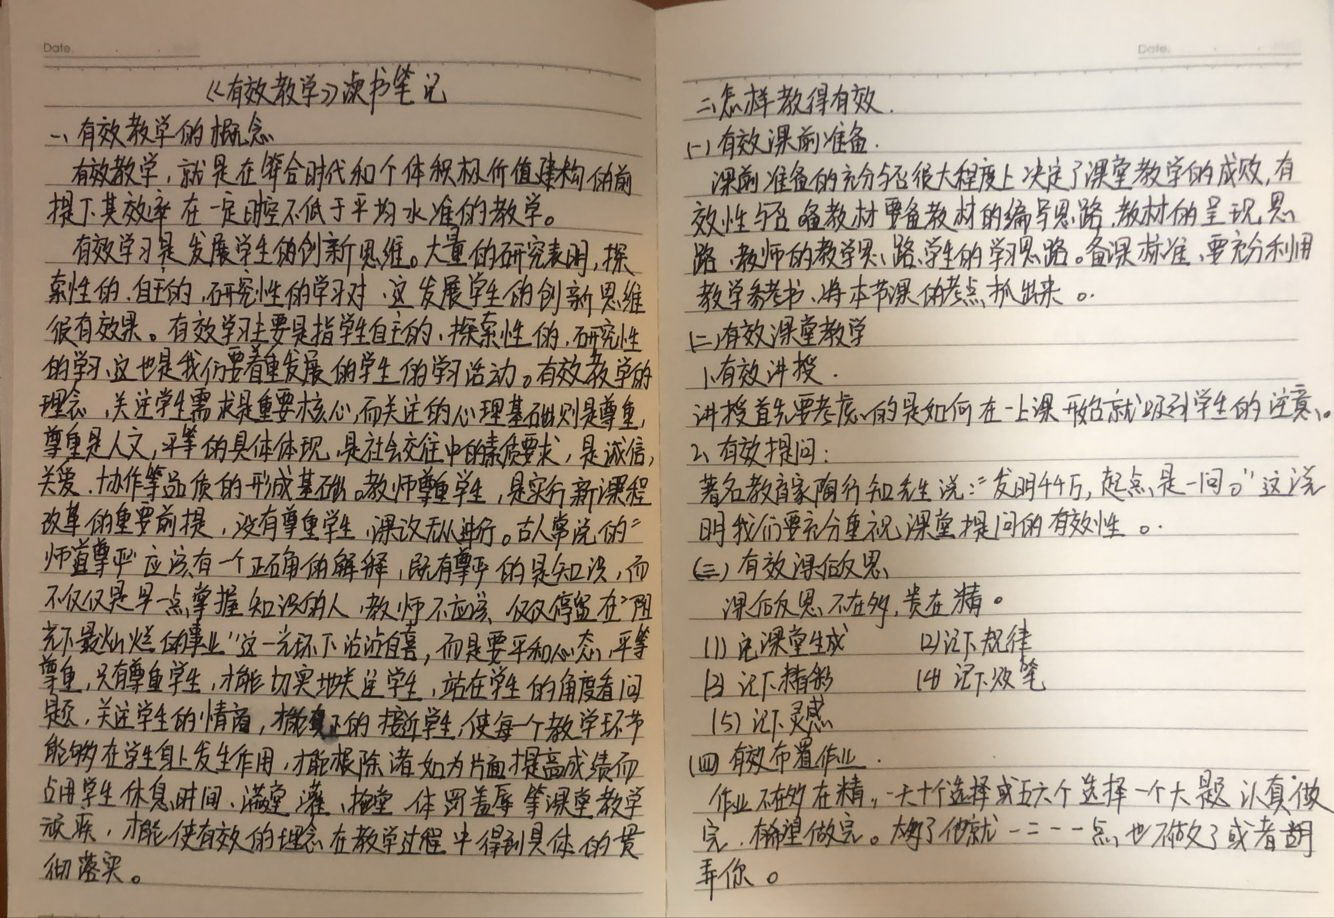 Date.
《有效教学》读书笔记
一、有效教学的概念
有效教学，就是在符合时代和个体积极价值建构的前
提下其效率在一定时空不低于平均水准的教学。
有效学习是发展学生的创新思维。大量的研究表明，探
索性的、自主的、研究性的学习对、这发展学生的创新思维
很有效果。有效学习主要是指学生自主的、探索性的、研究性
的学习、这也是我们要着重发展的学生的学习活动。有效教学的
理念，关注学生需求是重要核心，而关注的心理基础则是尊重，
尊重是人文，平等的具体体现，是社会交往中的素质要求，是诚信，
关爱、协作等品质的形成基础。教师尊重学生，是实行新课程
改革的重要前提，没有尊重学生，课改无从进行。古人常说的“
师道尊严”应该有一个正确的解释，既有尊严的是知识，而
不仅仅是早一点掌握知识的人，教师不应该、仅仅停留在“阳
光下最灿烂的事业”这一光环下沾沾自喜，而是要平和心态，平等
尊重，只有尊重学生，才能切实地关注学生，站在学生的角度看问
题，关注学生的情商，才能真正的接近学生，使每一个教学环节
能够在学生身上发生作用，才能根除诸如为片面提高成绩而
占用学生休息时间、满堂灌、拖堂、体罚羞辱等课堂教学
顽疾，才能使有效的理念在教学过程中得到具体的贯
彻落实。
Date.
二、怎样教得有效.
(一)有效课前准备.
课前准备的充分与否很大程度上决定了课堂教学的成败，有
效性与否 备教材要备教材的编写思路、教材的呈现、思
路、教师的教学思路、学生的学习思路。备课标准、要充分利用
教学参考书、将本节课的考点抓出来。
(二)有效课堂教学
1、有效讲授.
讲授首先要考虑的是如何在一上课开始就吸引学生的注意。
2、有效提问：
著名教育家陶行知先生说：“发明千千万，起点是一问。”这说
明我们要充分重视课堂提问的有效性。
(三)有效课后反思
课后反思不在多，贵在精。
(1)记课堂生成 (2)记下规律
(3)记下精彩 (4)记下败笔
(5)记下灵感
(四)有效布置作业.
作业不在多在精，一大十个选择或五六个选择一个大题 认真做
完、希望做完。 了他就一二一一点，也不做了或者胡
弄你。